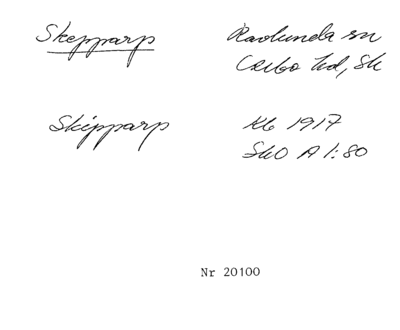 Skepparp Ravlunda sn
Albo hd, Sk
Skipparp Kb 1917
SkO A 1:80
Nr 20100